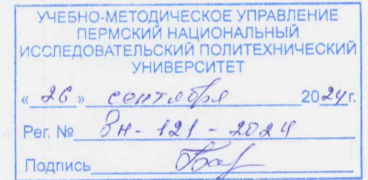 УЧЕБНО-МЕТОДИЧЕСКОЕ УПРАВЛЕНИЕ
ПЕРМСКИЙ НАЦИОНАЛЬНЫЙ
ИССЛЕДОВАТЕЛЬСКИЙ ПОЛИТЕХНИЧЕСКИЙ
УНИВЕРСИТЕТ
«26» сентября 2024г.
Рег. № Вн-121-2024
Подпись